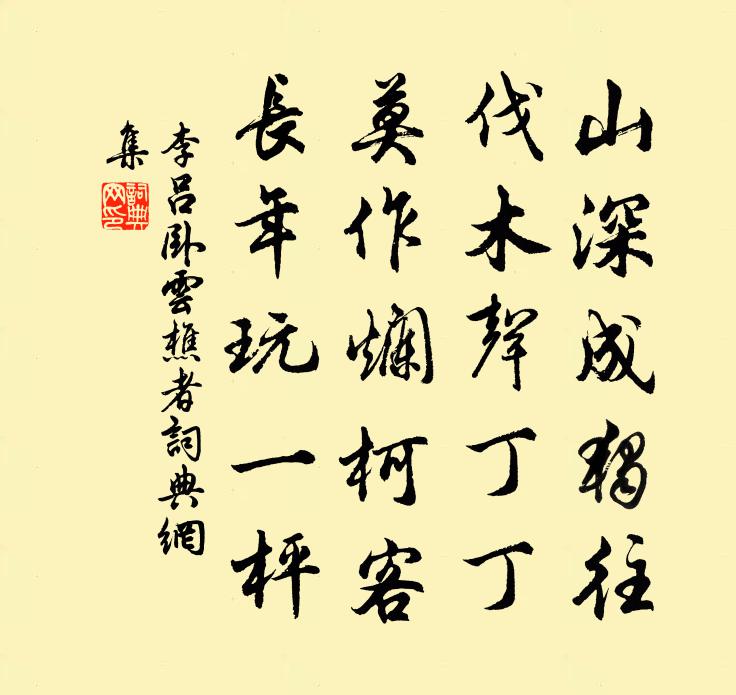 山深成獨往
伐木聲丁丁
莫作爛柯客
長年玩一枰
李呂臥雲樵者詞典網
集
詞典
网印